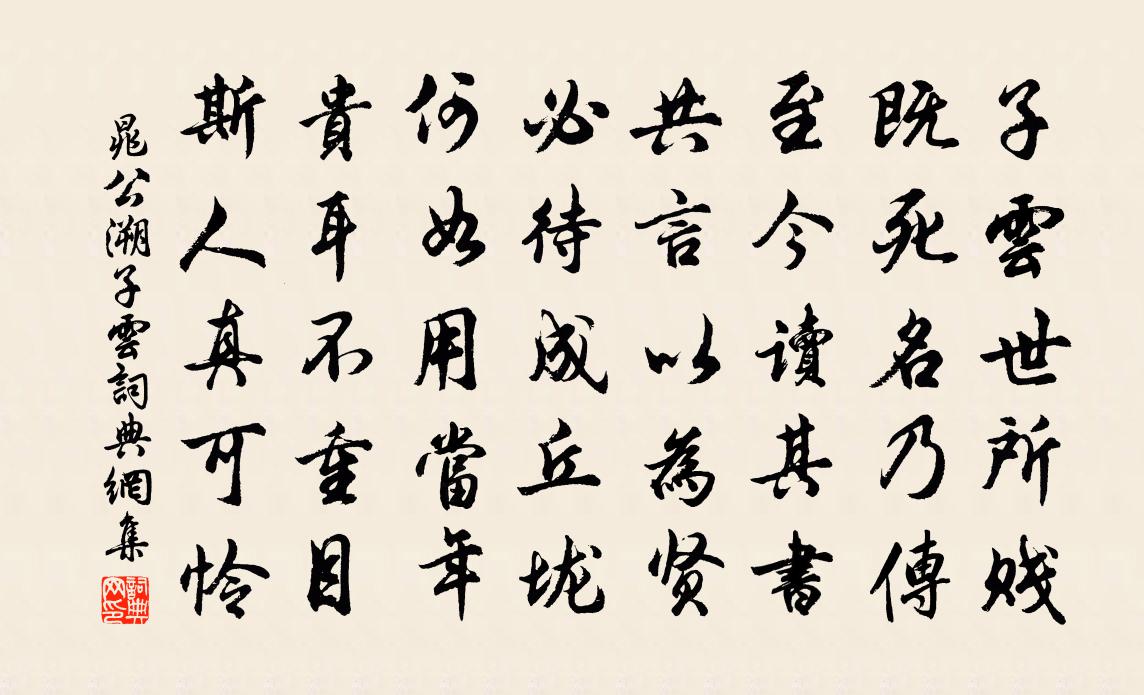 子雲世所賤
既死名乃傳
至今讀其書
共言以為賢
必待成丘垅
何如用當年
貴耳不重目
斯人真可怜
晁公溯子雲詞典網集
詞典网印